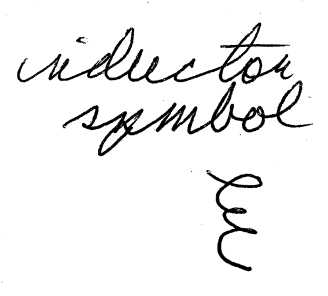 inductor
symbol